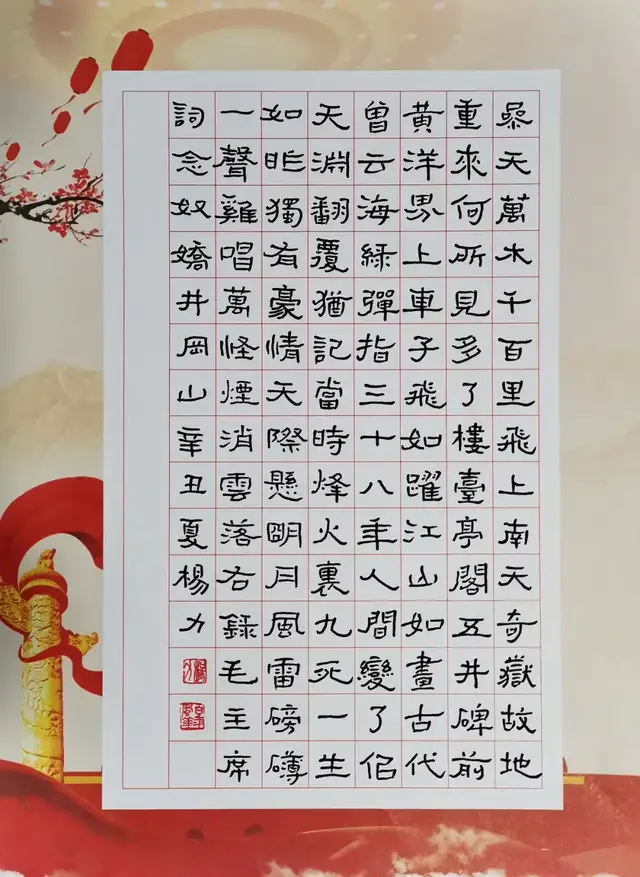 參天萬木千百里飛上南天奇嶽故地
重來何所見多了樓臺亭閣五井碑前
黃洋界上車子飛如躍江山如畫古代
曾云海綠彈指三十八年人間變了佀
天淵翻覆猶記當時烽火裏九死一生
如昨獨有豪情天際懸明月風雷磅礴
一聲雞唱萬怪煙消雲落右錄毛主席
詞念奴嬌井岡山辛丑夏楊力